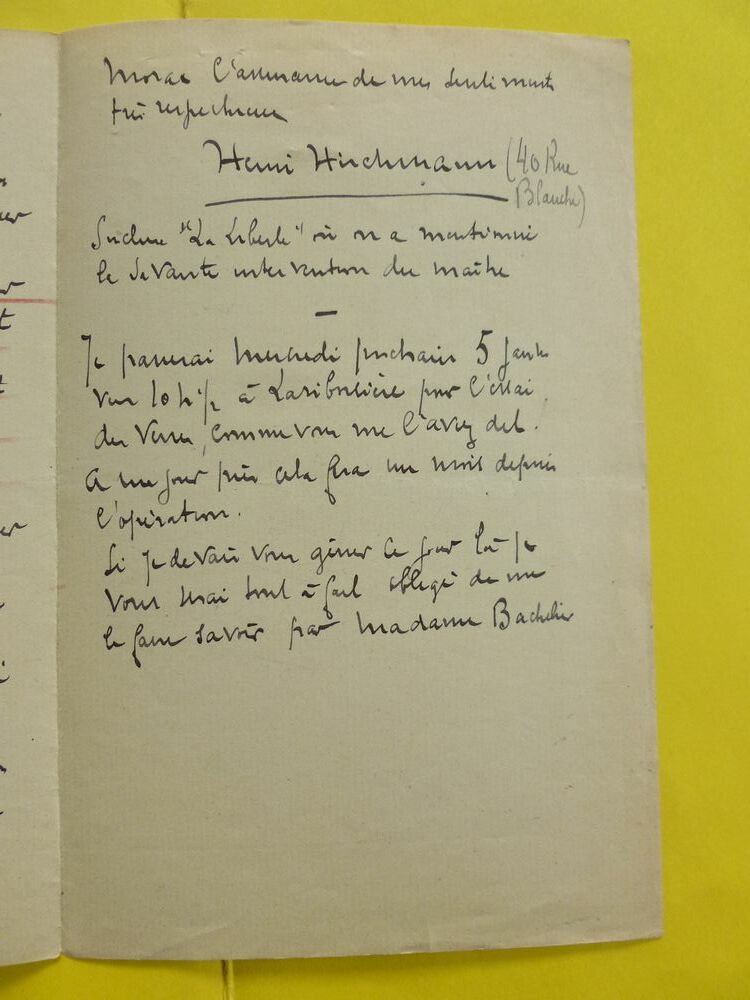 l'assurance de mes sentiments
très respectueux
Henri Hirchmann (40 Rue
Blanche)
"La Liberté" où on a mentionné
la savante intervention du maître
—
Je passerai mercredi prochain 5 Janv
vers 10 h ½ à Lariboisière pour l'essai
des verres, comme vous me l'avez dit.
A un jour près cela fera un mois depuis
l'opération.
Si je devais vous gêner ce jour là je
vous serai tout à fait obligé de me
le faire savoir par Madame Bachelier